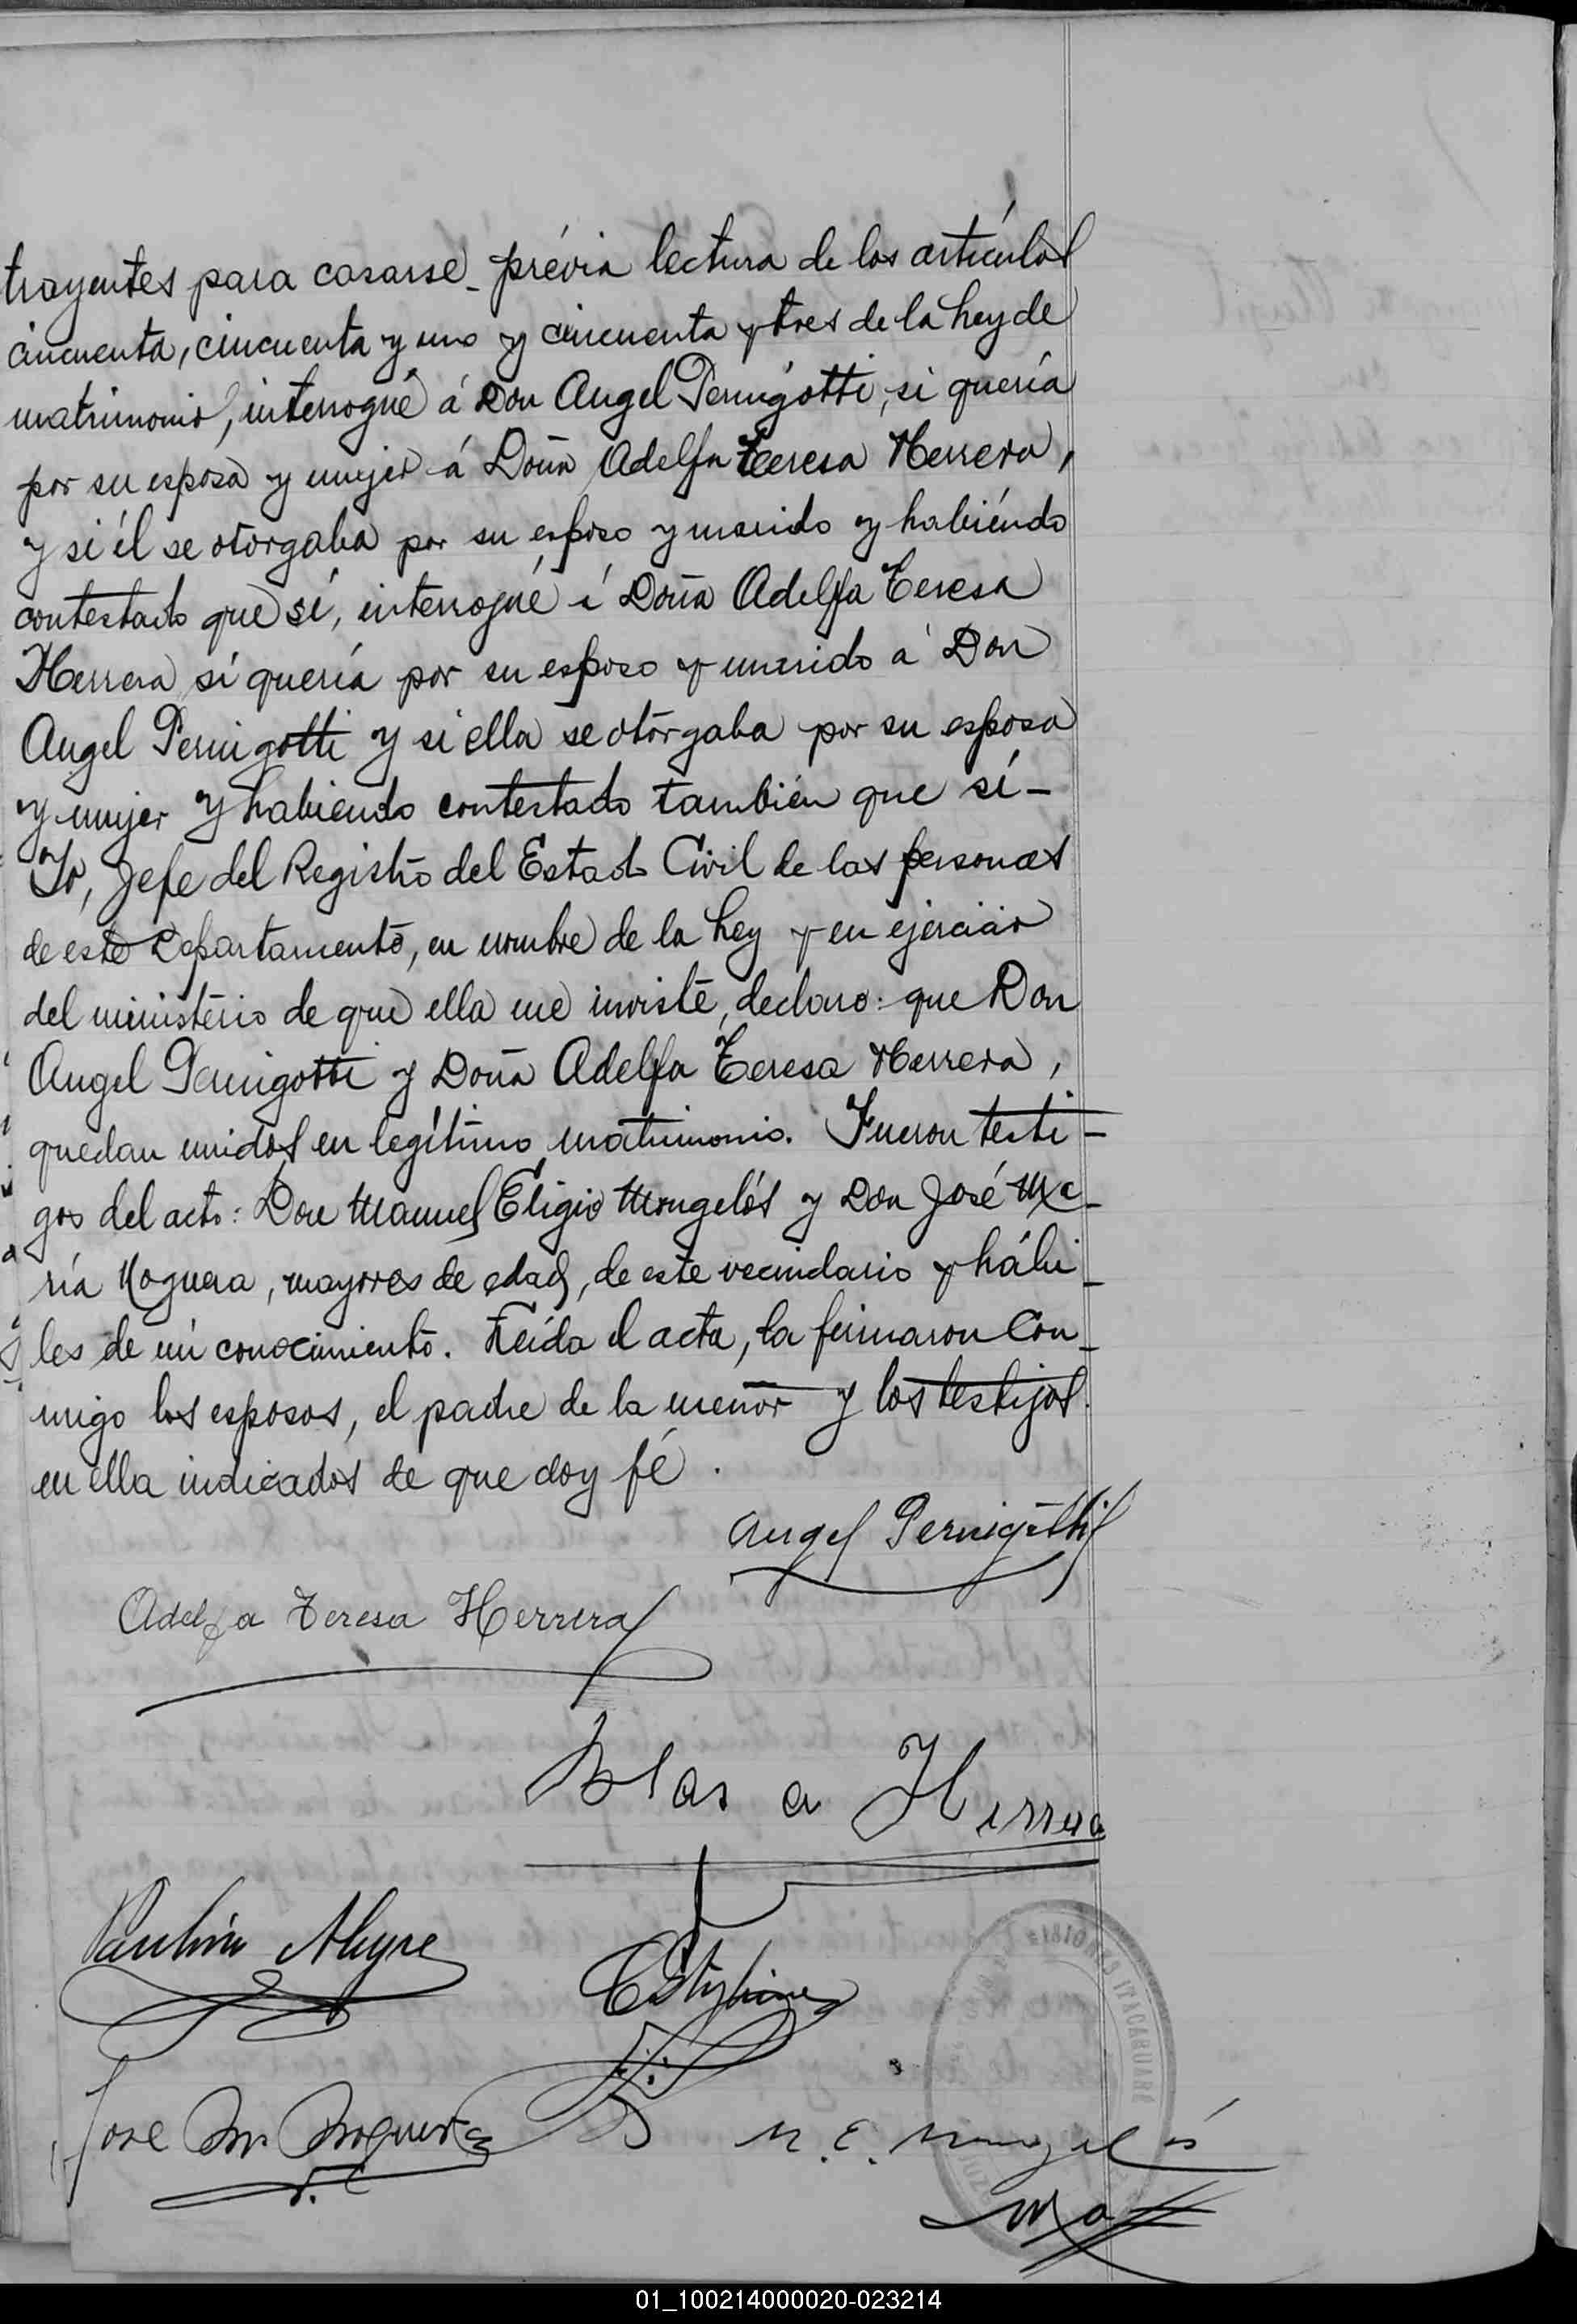 trayentes para casarse_ prévia lectura de los artículos
cincuenta, cincuenta y uno y cincuenta y tres de la Ley de
matrimonio, interrogué á Don Angel Pernigotti, si quería
por su esposa y mujer á Doña Adelfa Teresa Herrera,
y si él se otorgaba por su esposo y marido y habiéndo
contestado que sí, interrogué á Doña Adelfa Teresa
Herrera si quería por su esposo y marido a Don
Angel Pernigotti y si ella se otorgaba por su esposa
y mujer y habiendo contestado también que sí-
Yo, Jefe del Registro del Estado Civil de las personas
de este Departamento, en nombre de la Ley y en ejercicio
del ministerio de que ella me inviste, declaro: que Don
Angel Pernigotti y Doña Adelfa Teresa Herrera,
quedan unidos en legítimo matrimonio. Fueron testi-
gos del acto: Don Manuel Eligio Mongelós y Don José Ma-
ría Noguera, mayores de edad, de este vecindario y hábi-
les de mi conocimiento. Leída el acta, la firmaron Con-
migo los esposos, el padre de la menor y los testigos
en ella indicados de que doy fé.
Angel Pernigotti
Adelfa Teresa Herrera
Blas a Herrera
José M. Noguera
M. E. Mongelós
MISIONES ITACARUARÉ
01_100214000020-023214